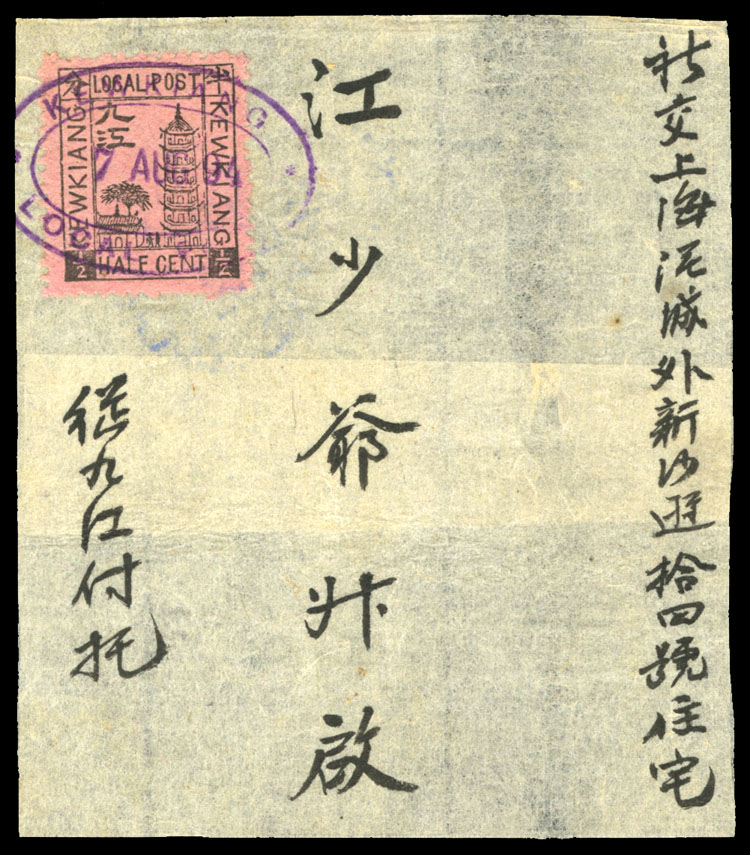 祈交上海泥城外新沙遜拾四號住宅
江少爺升啟
從九江付托
分 LOCAL POST 半
KEWKIANG
九江
KEWKIANG
½ HALF CENT ½
7 AUG 94
LOCAL